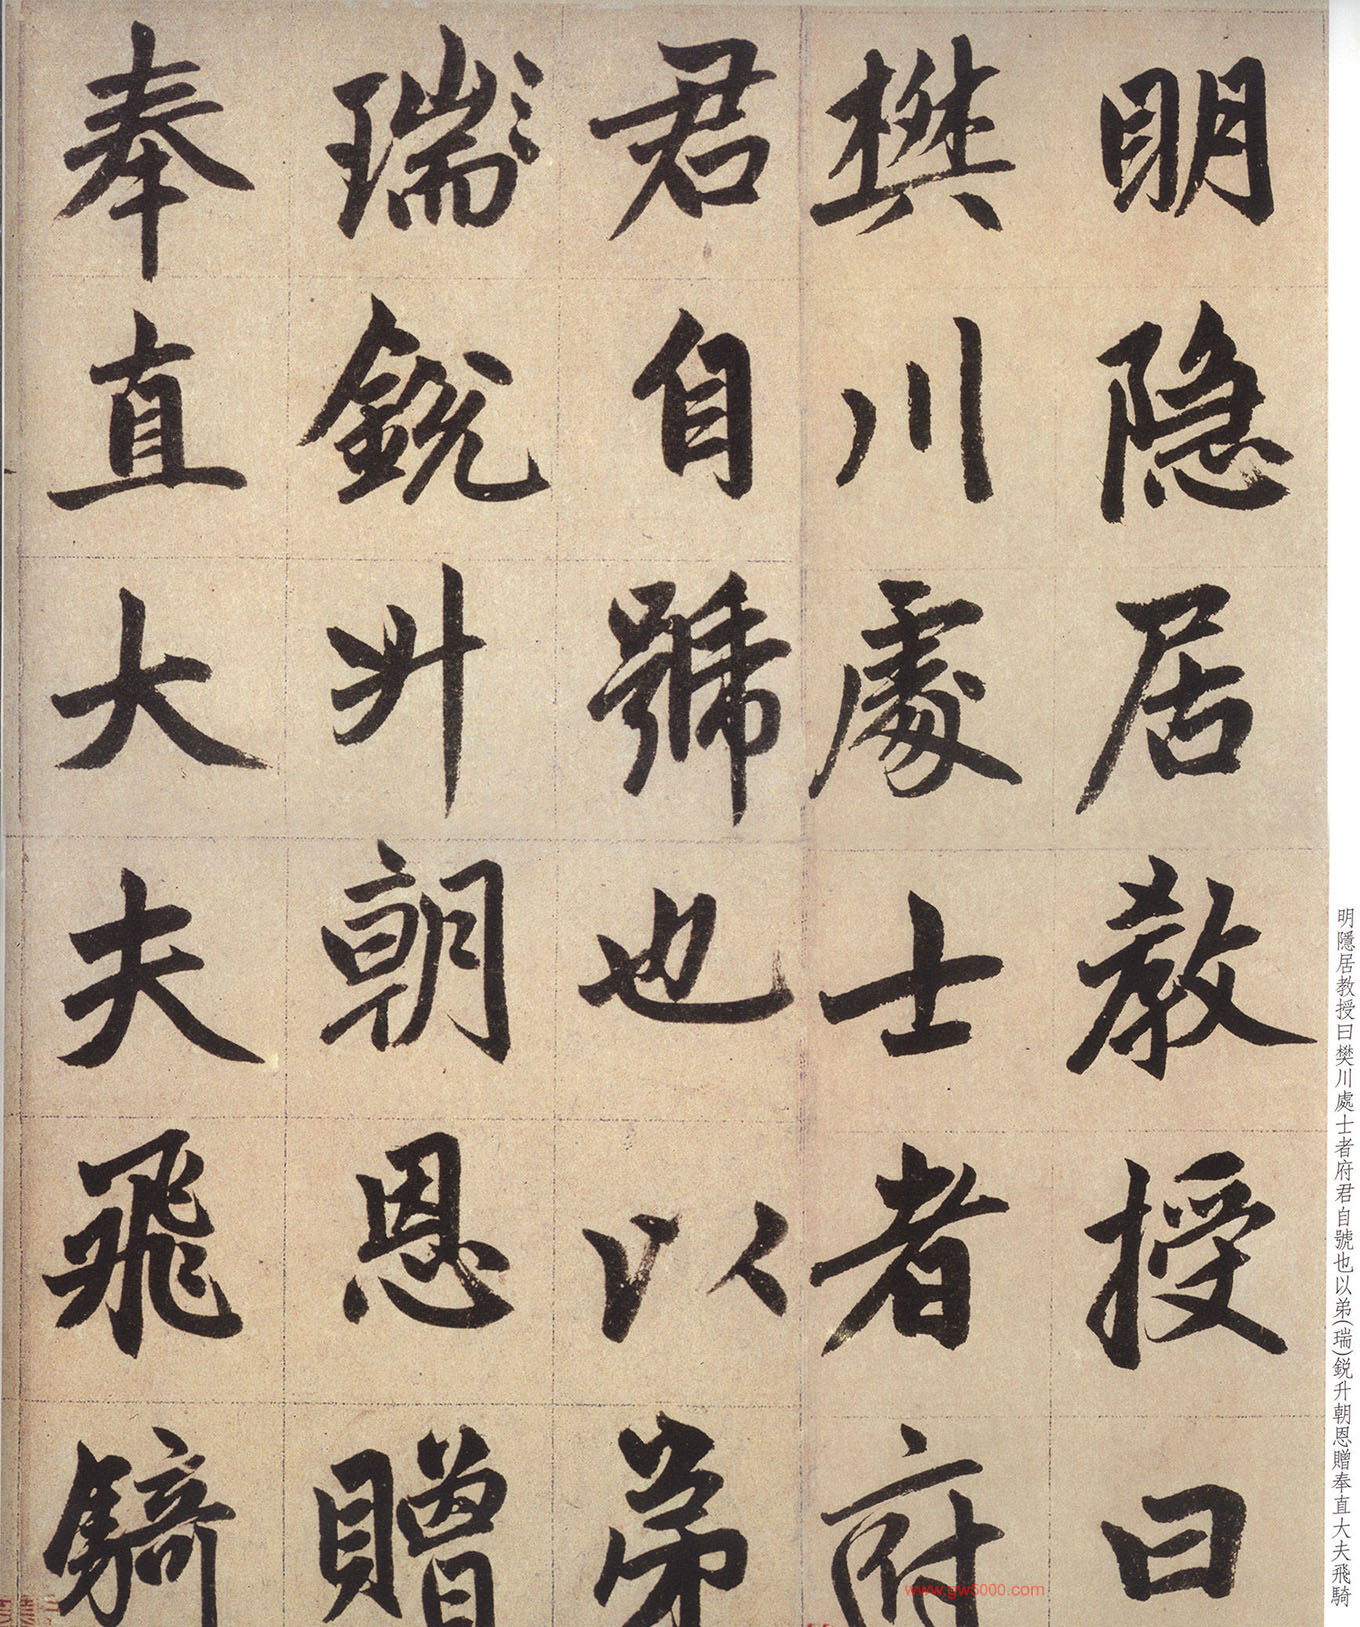 明隱居教授曰
樊川處士者府
君自號也以弟
瑞鋭升朝恩贈
奉直大夫飛騎
明隱居教授曰樊川處士者府君自號也以弟(瑞)鋭升朝恩贈奉直大夫飛騎
www.gw5000.com